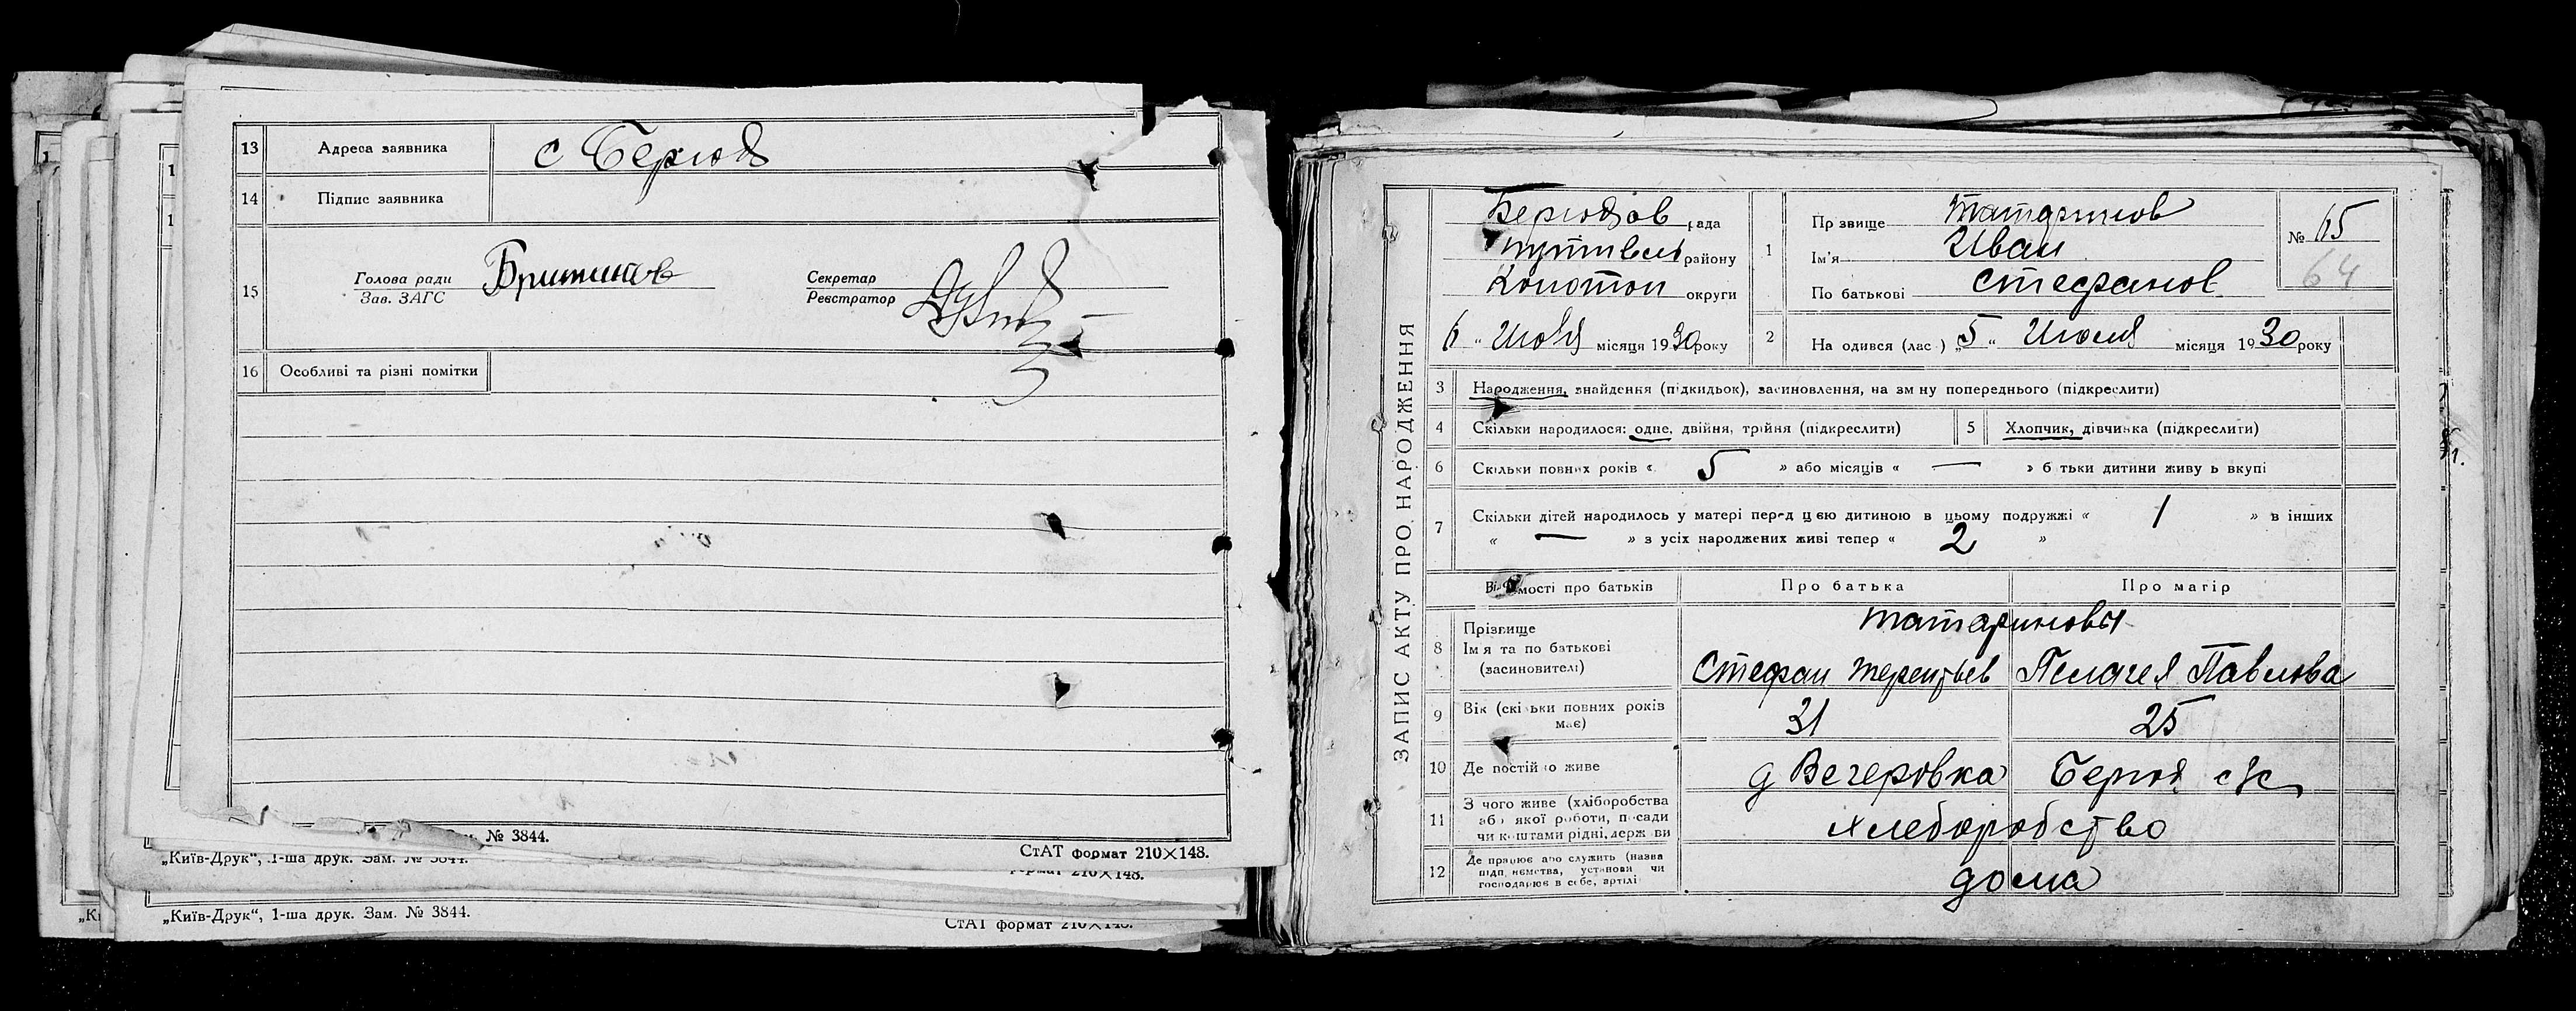 13 Адреса заявника с Берюх
14 Підпис заявника
15 Голова ради
Зав. ЗАГС
Секретар
Реєстратор
16 Особливі та різні помітки
№ 3844.
СтАТ формат 210×148.
„Київ-Друк“, 1-ша друк. Зам. № 3844.
формат 210×148.
„Київ-Друк“, 1-ша друк. Зам. № 3844.
СтАТ формат 210×148.
ЗАПИС АКТУ ПРО НАРОДЖЕННЯ
Берюхов рада
путивль району
Конотоп округи
6 “ Июля місяця 1930 року
1 Прізвище Татаринов
Ім'я Иван
По батькові Стефанов
№ 65
64
2 На одився (лас ) „5 “ Июля місяця 1930 року
3 Народження, знайдення (підкидьок), засиновлення, на зм ну попереднього (підкреслити)
4 Скільки народилося: одне, двійня, трійня (підкреслити) 5 Хлопчик, дівчинка (підкреслити)
6 Скільки повних років « 5 » або місяців « — » б тьки дитини живу ь вкупі
7 Скільки дітей народилось у матері перед цією дитиною в цьому подружжі « 1 » в інших
« — » з усіх народжених живі тепер « 2 »
Відомості про батьків Про батька Про матір
8 Прізвище
Ім'я та по батькові
(засновителі)
Татариновы
Стефан Терентьев Пелагея Павлова
9 Вік (скільки повних років має) 31 25
10 Де постійно живе д Вечеровка Берюх с/с
11 З чого живе (хліборобства
або якої роботи, посади
чи коштами рідні, держави
хлеборобство
12 Де працює або служить (назва
підприємства, установи чи
господарює в себе, артілі
дома